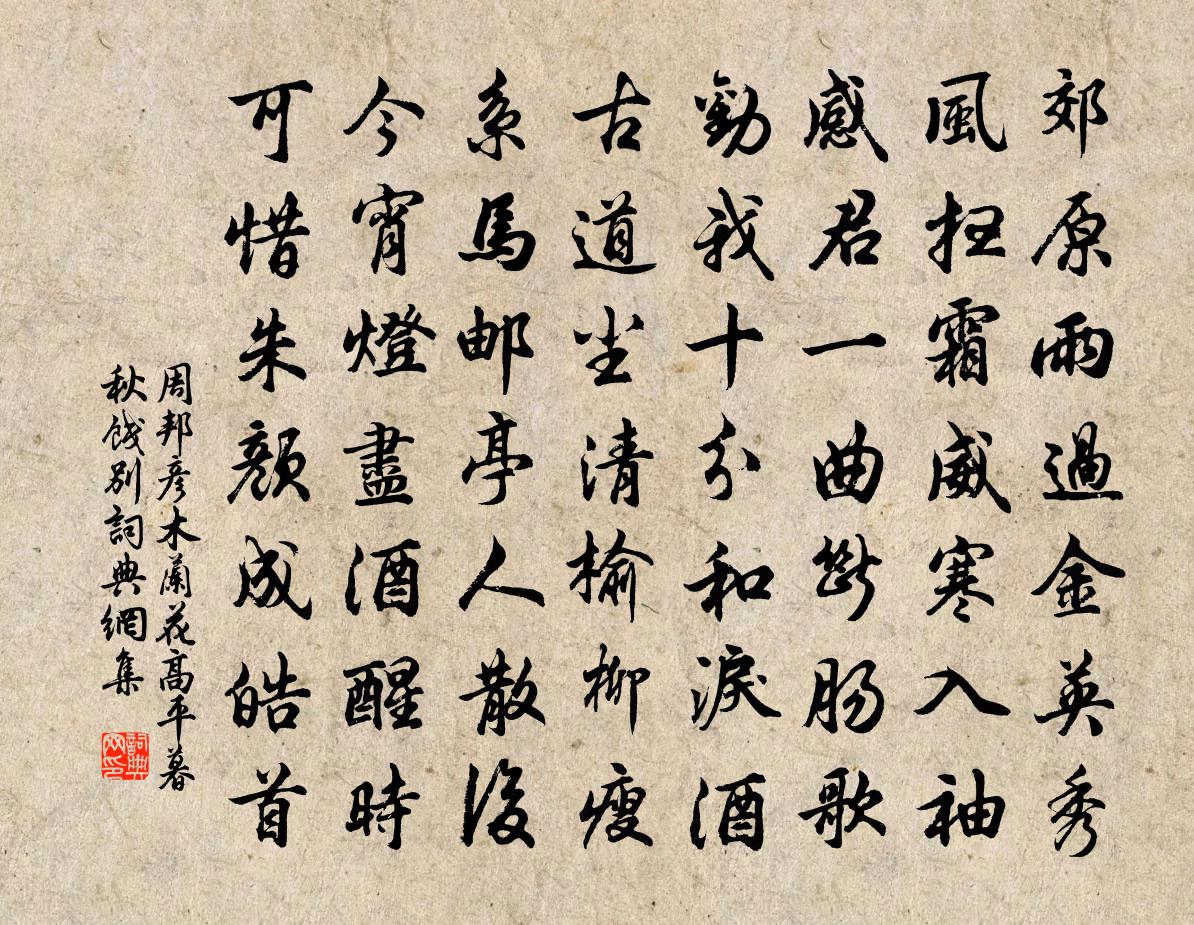 郊原雨過金英秀
風扫霜威寒入袖
感君一曲斷肠歌
勸我十分和淚酒
古道尘清榆柳瘦
系馬邮亭人散後
今宵燈盡酒醒時
可惜朱顏成皓首
周邦彦木蘭花高平暮
秋餞别詞典網集
詞典網印